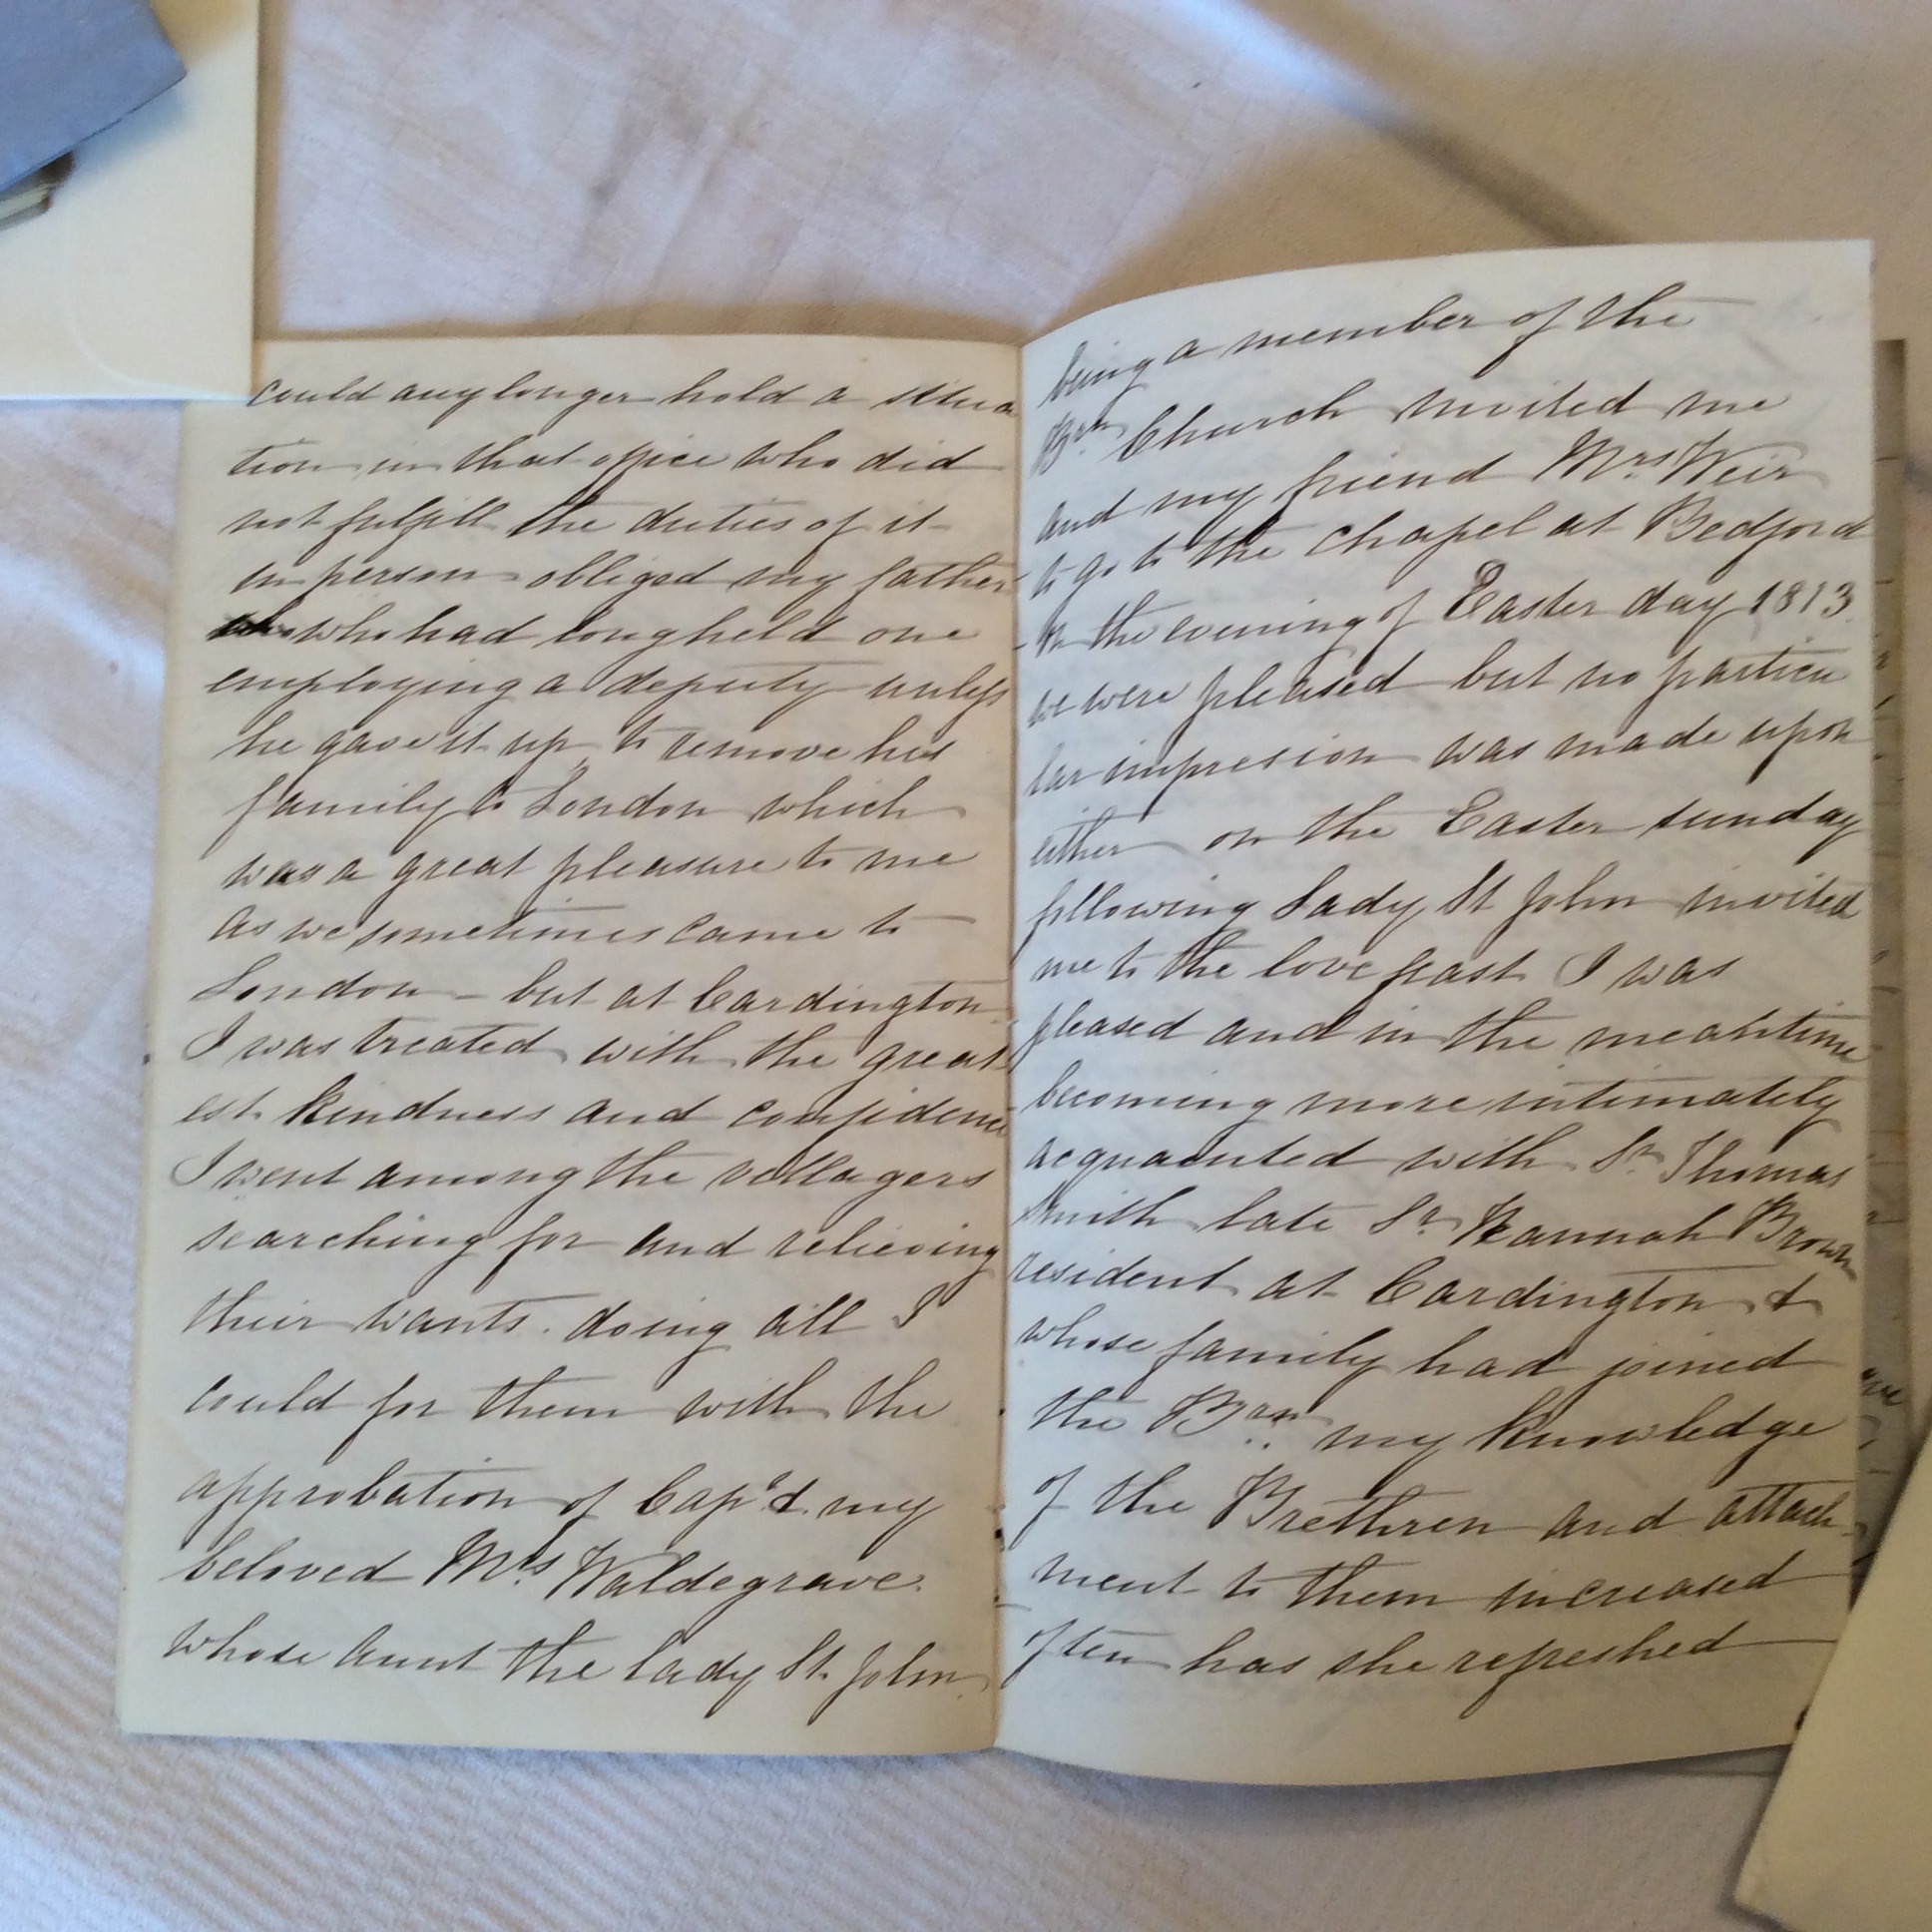 could any longer hold a situa
tion in that office who did
not fulfill the duties of it
in person obliged my father
who had long held one
employing a deputy unless
he gave it up to remove his
family to London which
was a great pleasure to me
as we sometimes came to
London - but at Cardington
I was treated with the great
est kindness and confidence
I went among the villagers
searching for and relieving
their wants. doing all I
could for them with the
approbation of Capt & my
beloved Mrs Waldegrave.
whose aunt the lady St. John
being a member of the
Brn Church invited me
and my friend Mrs. Weir
to go to the chapel at Bedford
in the evening of Easter day 1813.
we were pleased but no particu
lar impresion was made upon
either on the Easter sunday
following Lady St John invited
me to the love feast I was
pleased and in the meantime
becoming more intimately
acquainted with Sr Thomas
Smith late Sr. Hannah Brown
resident at Cardington &
whose family had joined
the Brn. my knowledge
of the Brethren and attach-
ment to them increased
often has she refreshed